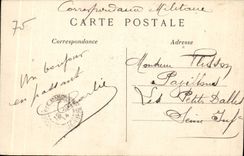 Correspondance Militaire
75
CARTE POSTALE
Correspondance
Adresse
Un bonjour
en passant
Monsieur
Papillons
Les Petites Dalles
Seine Inf